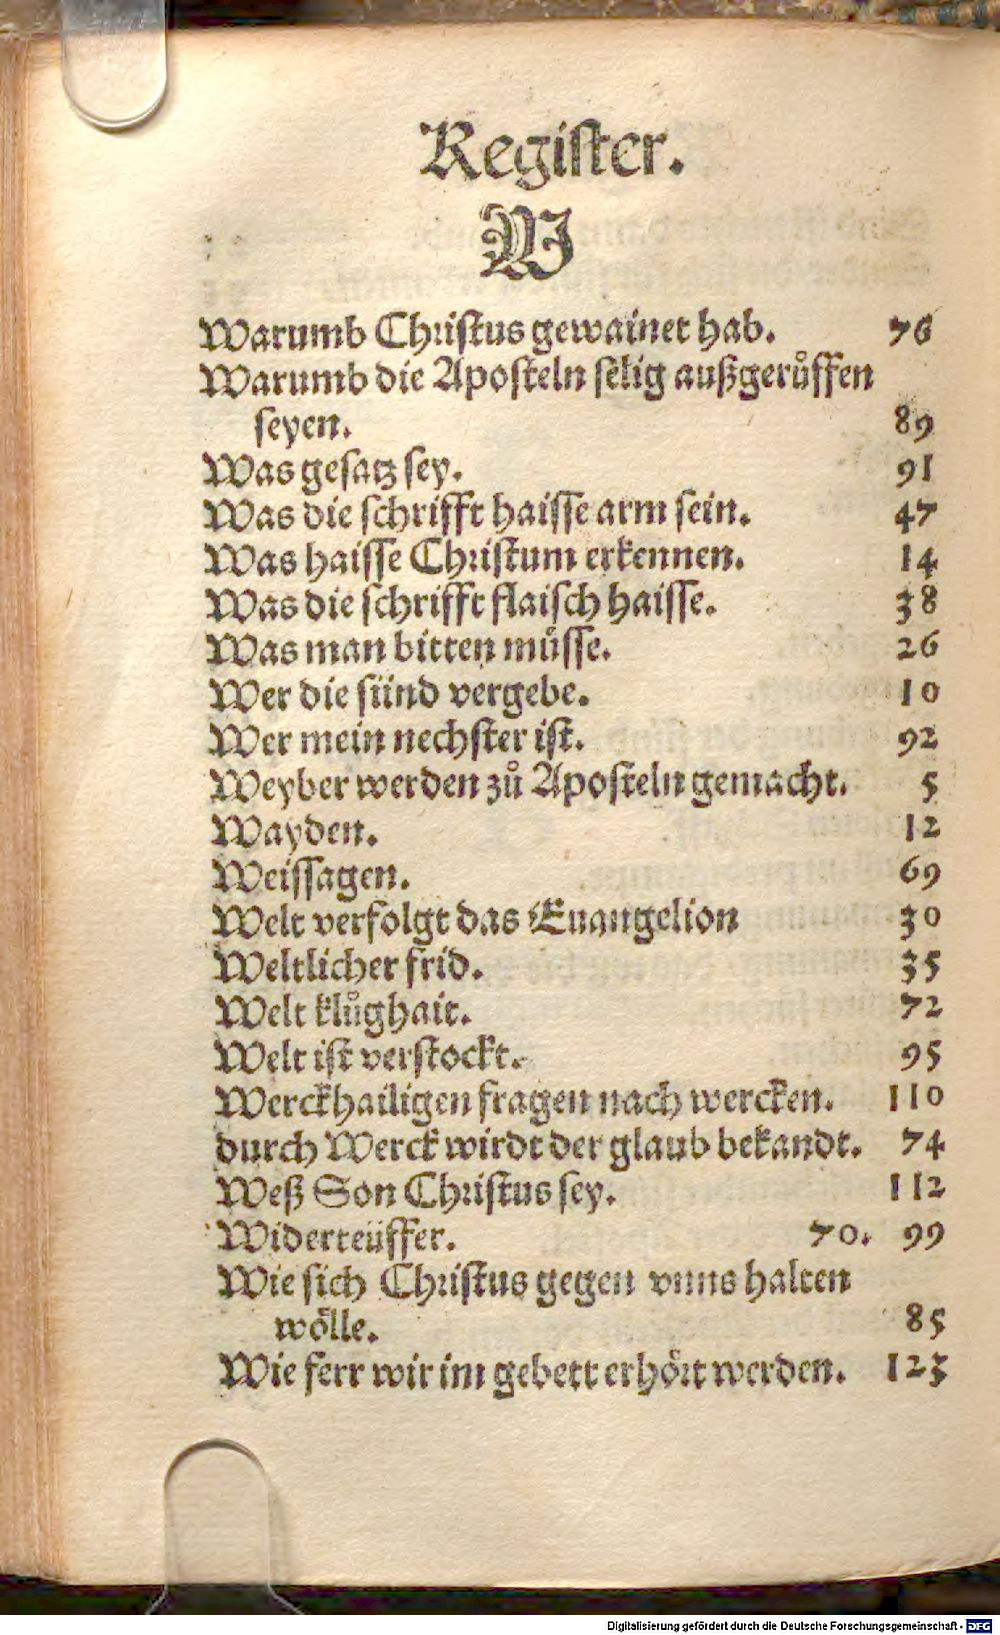 Regiſter.
W
Warumb Chriſtus gewainet hab. 76
Warumb die Apoſteln ſelig außgerůffen
ſeyen. 89
Was geſatz ſey. 91
Was die ſchrifft haiſſe arm ſein. 47
Was haiſſe Chriſtum erkennen. 14
Was die ſchrifft flaiſch haiſſe. 38
Was man bitten müſſe. 26
Wer die ſünd vergebe. 10
Wer mein nechſter iſt. 92
Weyber werden zů Apoſteln gemacht. 5
Wayden. 12
Weiſſagen. 69
Welt verfolgt das Euangelion 30
Weltlicher frid. 35
Welt klůghait. 72
Welt iſt verſtockt. 95
Werckhailigen fragen nach wercken. 110
durch Werck wirdt der glaub bekandt. 74
Weß Son Chriſtus ſey. 112
Widerteüffer. 70. 99
Wie ſich Chriſtus gegen vnns halten
wölle. 85
Wie ferr wir im gebett erhört werden. 123
Digitalisierung gefördert durch die Deutsche Forschungsgemeinschaft - DFG